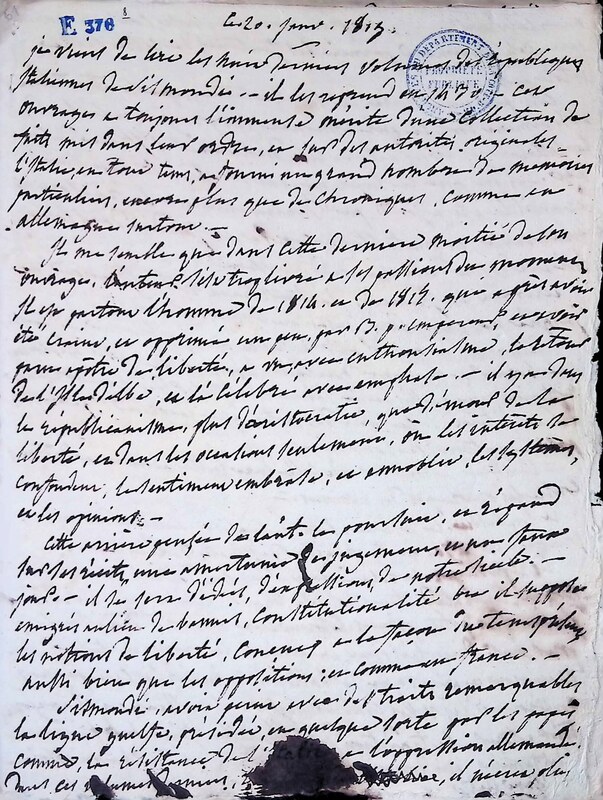 E 376 8
ce 20. janv. 181
je viens de lire les trois derniers volumes des Républiques
italiennes de Sismondi — il les reprend en ces
ouvrages a toujours l'immense mérite d'une collection de
faits mis dans leur ordre, et sur des autorités originales.
L'italie, en tout tems, a fourni un grand nombre de mémoires
particuliers, encore plus que de chroniques, comme en
allemagne surtout. —
Il me semble que dans cette dernière moitié de son
ouvrage, l'auteur s'est trop livré a ses passions du moment
Il est partout l'homme de 1814. et de 1815. que après avoir
été craint, et opprimé un peu par B. p. empereur, et avoir
apôtre de liberté, a vu avec enthousiasme, le retour
de l'Isle d'Elbe, et l'a célébré avec emphase. — il y a dans
le républicanisme, plus d'aristocratie, que d'amour de la
liberté, et dans les occasions seulement, où les intérêts se
confondent, le sentiment embrase, et annoblit, les systèmes,
et les opinions. —
Cette arrière pensée de l'aut. le poursuit, et répand
sur ses récits, une amertume de jugement,
il se sert d'idées, d'expressions, de notre siècle. —
émigrés au lieu de bannis, constitutionalité il suppose
les notions de liberté, conçues a la façon du tems présent
aussi bien que les oppositions, et comme en france. —
Sismondi, avait peint avec des traits remarquables
la ligue guelfe, présidée, en quelque sorte par les papes
comme, la résistance de l'italie, a l'oppression allemande.
dans ces volumes derniers, il n'écrit plus